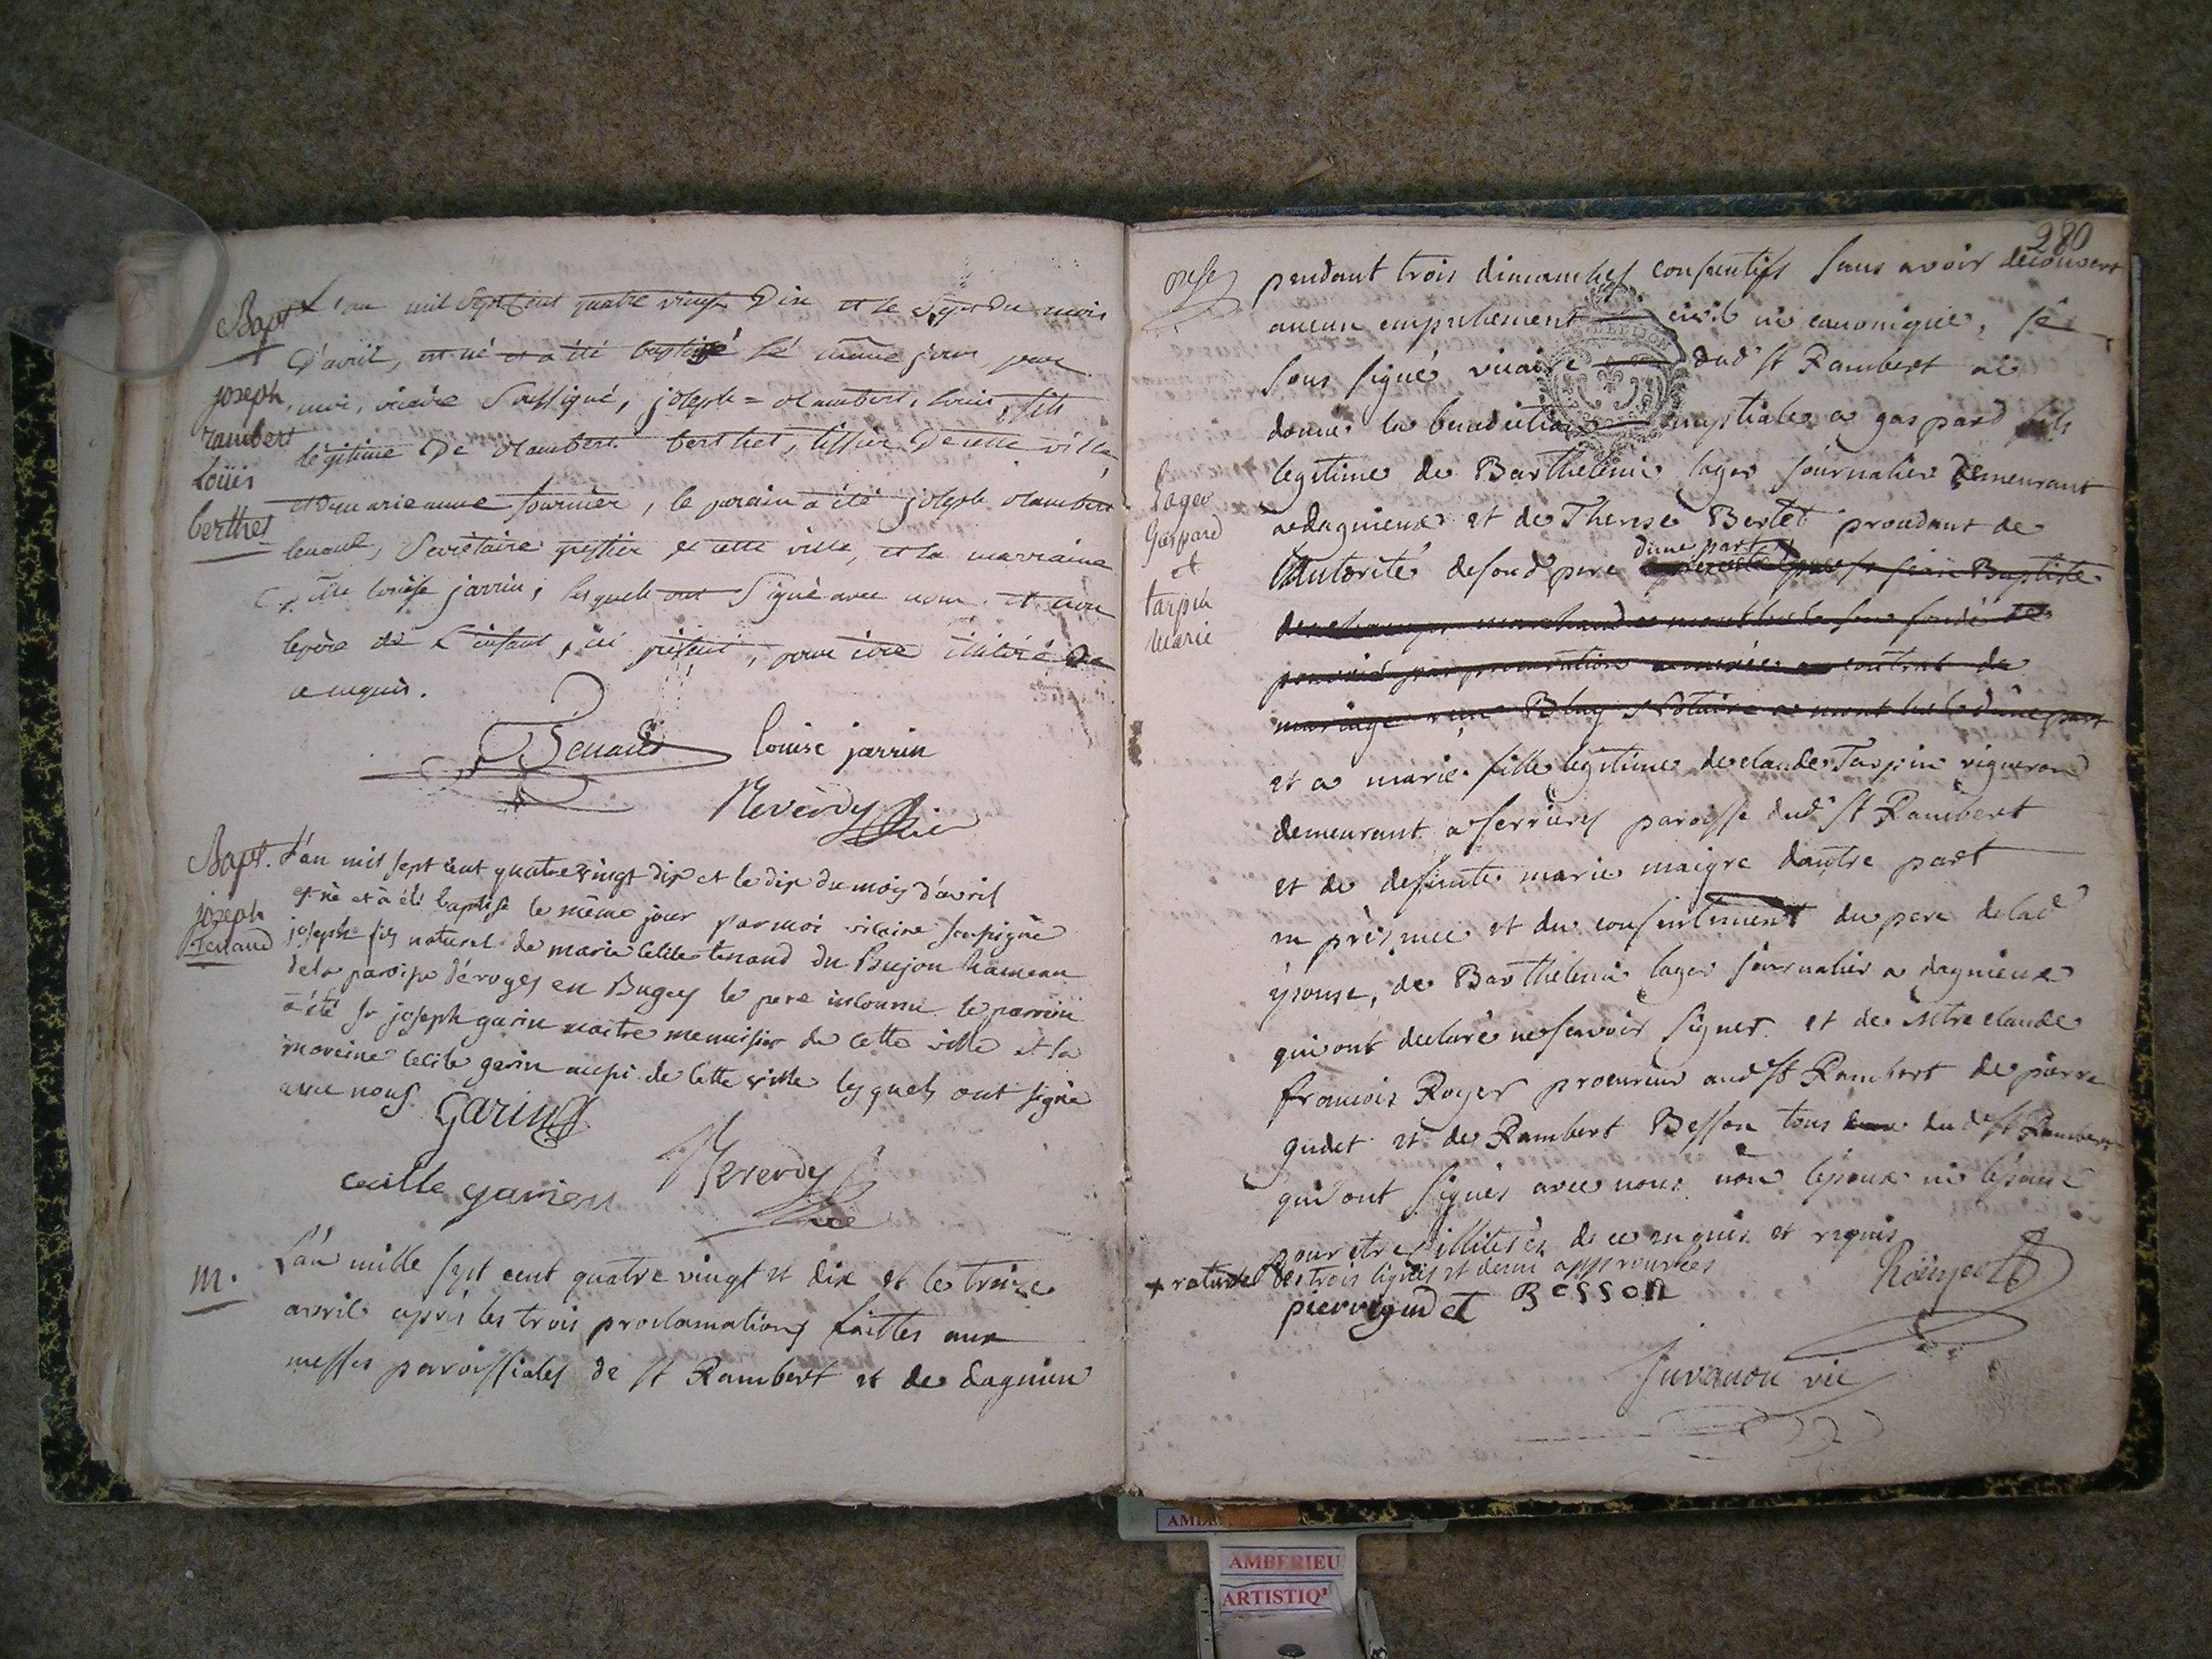 Bapt
joseph
rambert
loüis
berthet
L'an mil Sept Cent quatre vingt Dix et le Sept du mois
D'avril, est né et a été baptisé Lé même jour par
moi, vicaire Soussigné, joseph = Rambert, louis, fils
légitime De Rambert berthet, tissier De cette ville,
et de marieanne fournier, le parain a été joseph Rambert
tenand, Secrétaire greffier de cette ville, et la marraine
louise jarrin, lesquels ont Signé avec nous et non
lepère de L'enfant, ici présent, pour être illitéré De
ce enquis.
Tenand
louise jarrin
Reverdy vic
Bapt.
joseph
Tenand
L'an mil sept cent quatre vingt dix et le dix du mois d'avril
est né et a été baptisé le même jour par moi vicaire soussigné
joseph fils naturel de marie cecile tenand du Bujon hameau
dela paroisse d'éroges en Bugey le pere inconnu le parrein
a été sr joseph garin maitre menuisier de cette ville et la
mareine cecile garin aussi de cette ville lesquels ont signé
avec nous
Garin
cecille garrien
Reverdy
vic
m.
L'an mille sept cent quatre vingt et dix et le treize
avril après les trois proclamations faittes aux
messes paroissiales de st Rambert et de dagnieu
280
Lager
Gaspard
et
tarpin
Marie
pendant trois dimanches consecutifs sans avoir découvert
aucun empechement civil ni canonique, je
sous signé vicaire dud st Rambert ai
donné la benediction nuptiale a gaspard fils
legitime de Barthelemi lager journalier demeurant
a dagnieux et de Therese Bertet procedant de
l'Autorité desond pere
d'une part
mariage reçu Blay Notaire a montluel d'une part
et a marie fille legitime de claude Tarpin vigneron
demeurant a serrieres paroisse dud st Rambert
et de defunte marie maigre d'autre part
en présence et du consentement du pere delad
épouse, de Barthelemi lager journalier a dagnieux
qui ont declaré ne savoir signer et de Mtre claude
francois Roger procureur aud st Rambert de pierre
gudet et de Rambert Besson tous dud st Rambert
qui ont signés avec nous non l'epoux ni l'epouse
pour etre illiterés de ce enquis et requis
+ rature des trois lignes et demi approuvées
pierre gudet
Besson
Juvanon vic
AMBERIEU
ARTISTIQ'